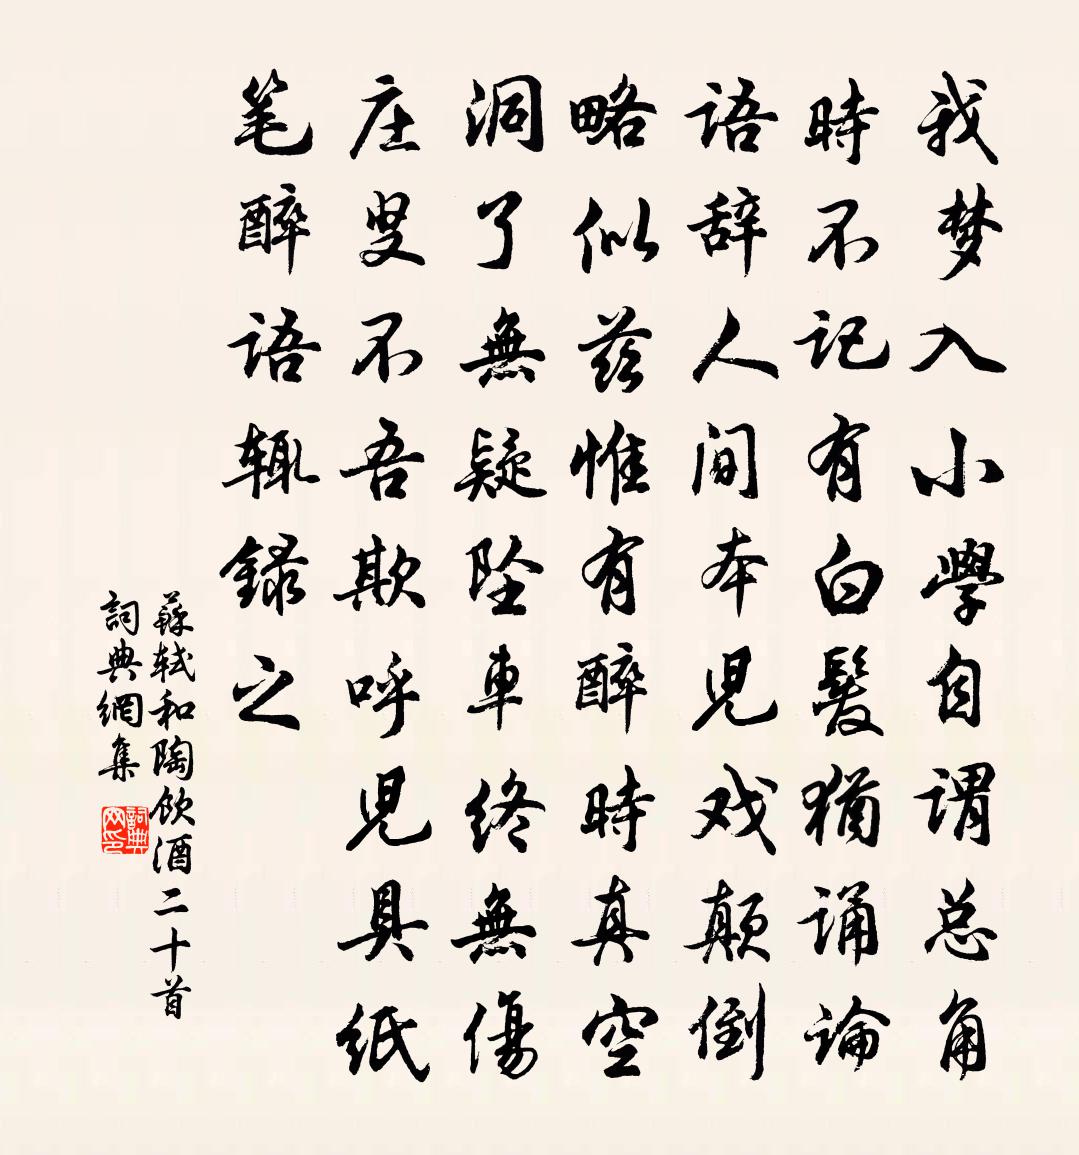 我梦入小學自谓总角
時不记有白髮猶诵論
语辞人间本児戏颠倒
略似兹惟有醉時真空
洞了無疑坠車终無傷
庄叟不吾欺呼児具纸
笔醉语辄録之
蘇轼和陶饮酒二十首
詞典網集
詞典网印